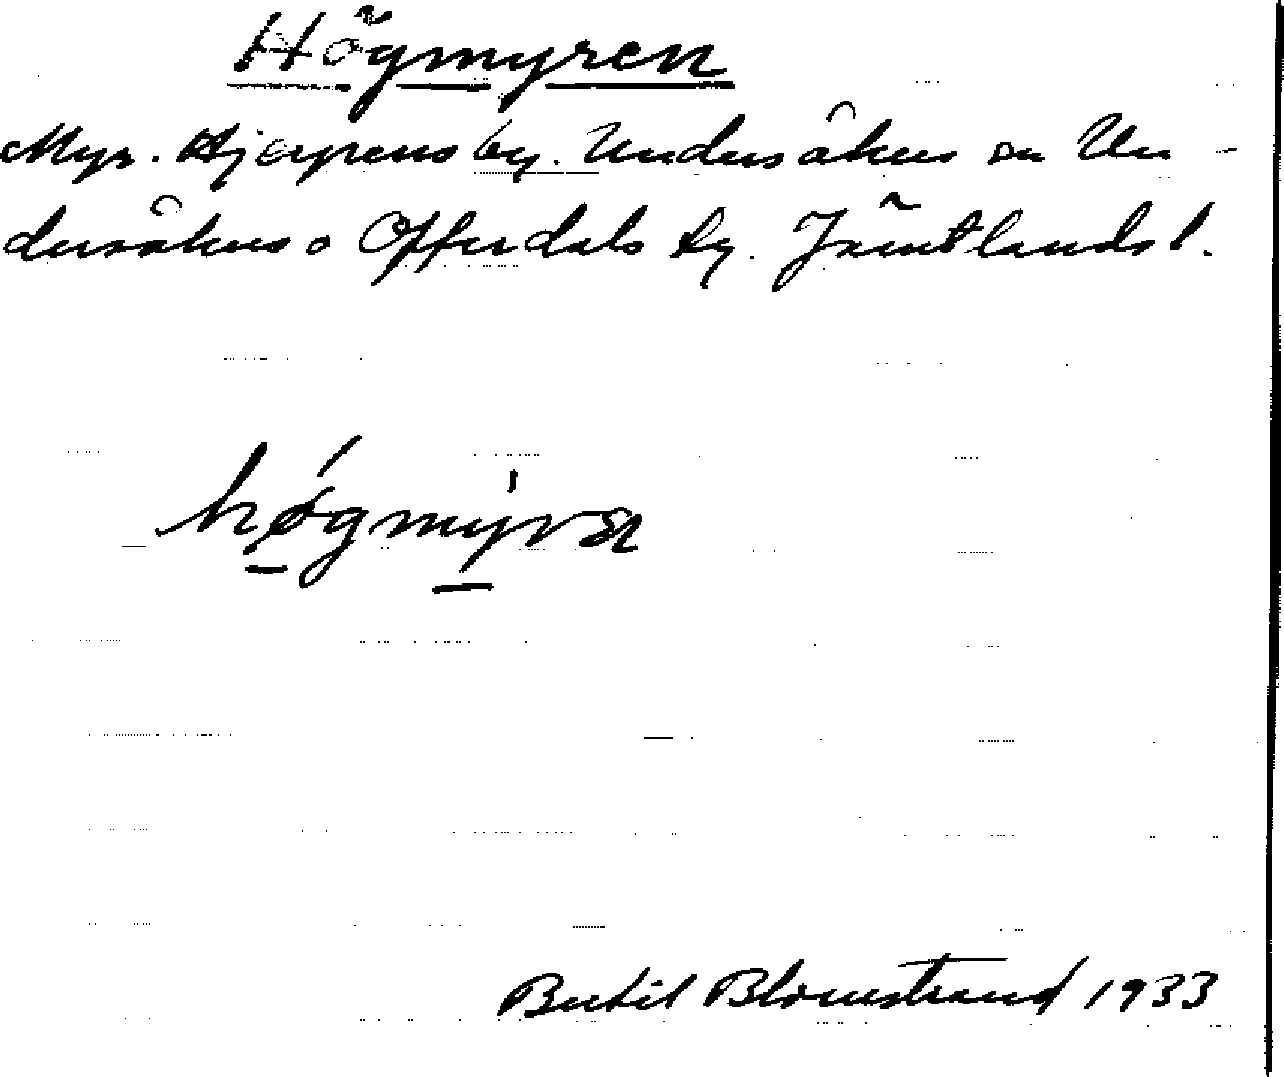 Högmyren
Myr. Hjerpens by. Undersåkers sn Un-
dersåkers o Offerdals tg. Jämtlands l.
høgmyra
Bertil Blomstrand 1933